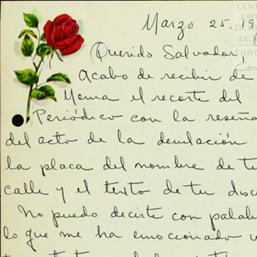 Marzo 25, 19
¡Querido Salvador!
Acabo de recibir de
Yema el recorte del
Periódico con la reseña
del acto de la develación
la placa del nombre de tu
calle y el texto de tu disc
No puedo decirte con palab
lo que me ha emocionado